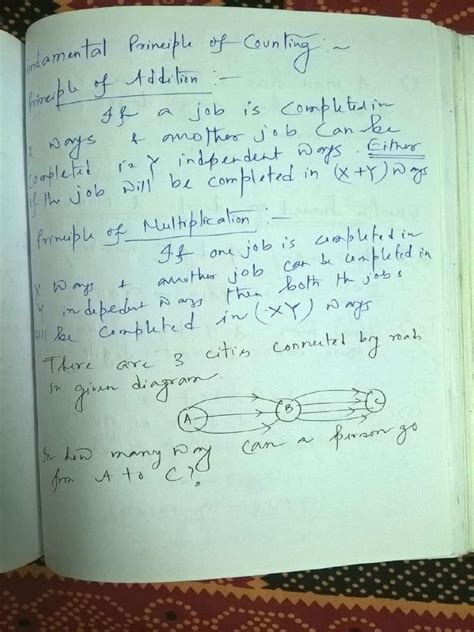 undamental Principle of Counting:~
Principle of Addition:-
If a job is completed in
X ways & another job can be
completed in Y independent ways. Either
of the job will be completed in (X+Y) ways
Principle of Multiplication:-
If one job is completed in
X ways & another job can be completed in
Y independent ways then both th jobs
will be completed in (XY) ways
There are 3 cities connected by roads
in given diagram.
A B C
In how many way can a person go
from A to C?